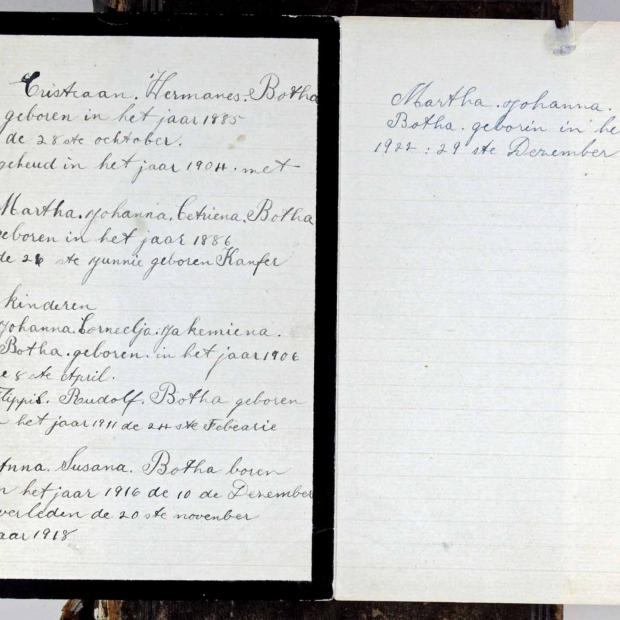 Cristiaan. Hermanes. Botha
geboren in het jaar 1885
de 28 ste ochtober.
geheud in het jaar 1904. met
Martha. Johanna. Cetriena. Botha
geboren in het jaar 1886
de 26 ste Junnie geboren Kanfer
kinderen
Johanna. Cornelja. Jakemiena.
Botha. geboren. in het jaar 1906
de 8 ste April.
Flippis. Rudolf. Botha geboren
in het jaar 1911 de 24 ste Febearie
Anna. Susana. Botha boren
in het jaar 1916 de 10 de Dezember
overleden de 20 ste november
jaar 1918
Martha. Johanna.
Botha. geborin in he
1922 : 29 ste Dezember